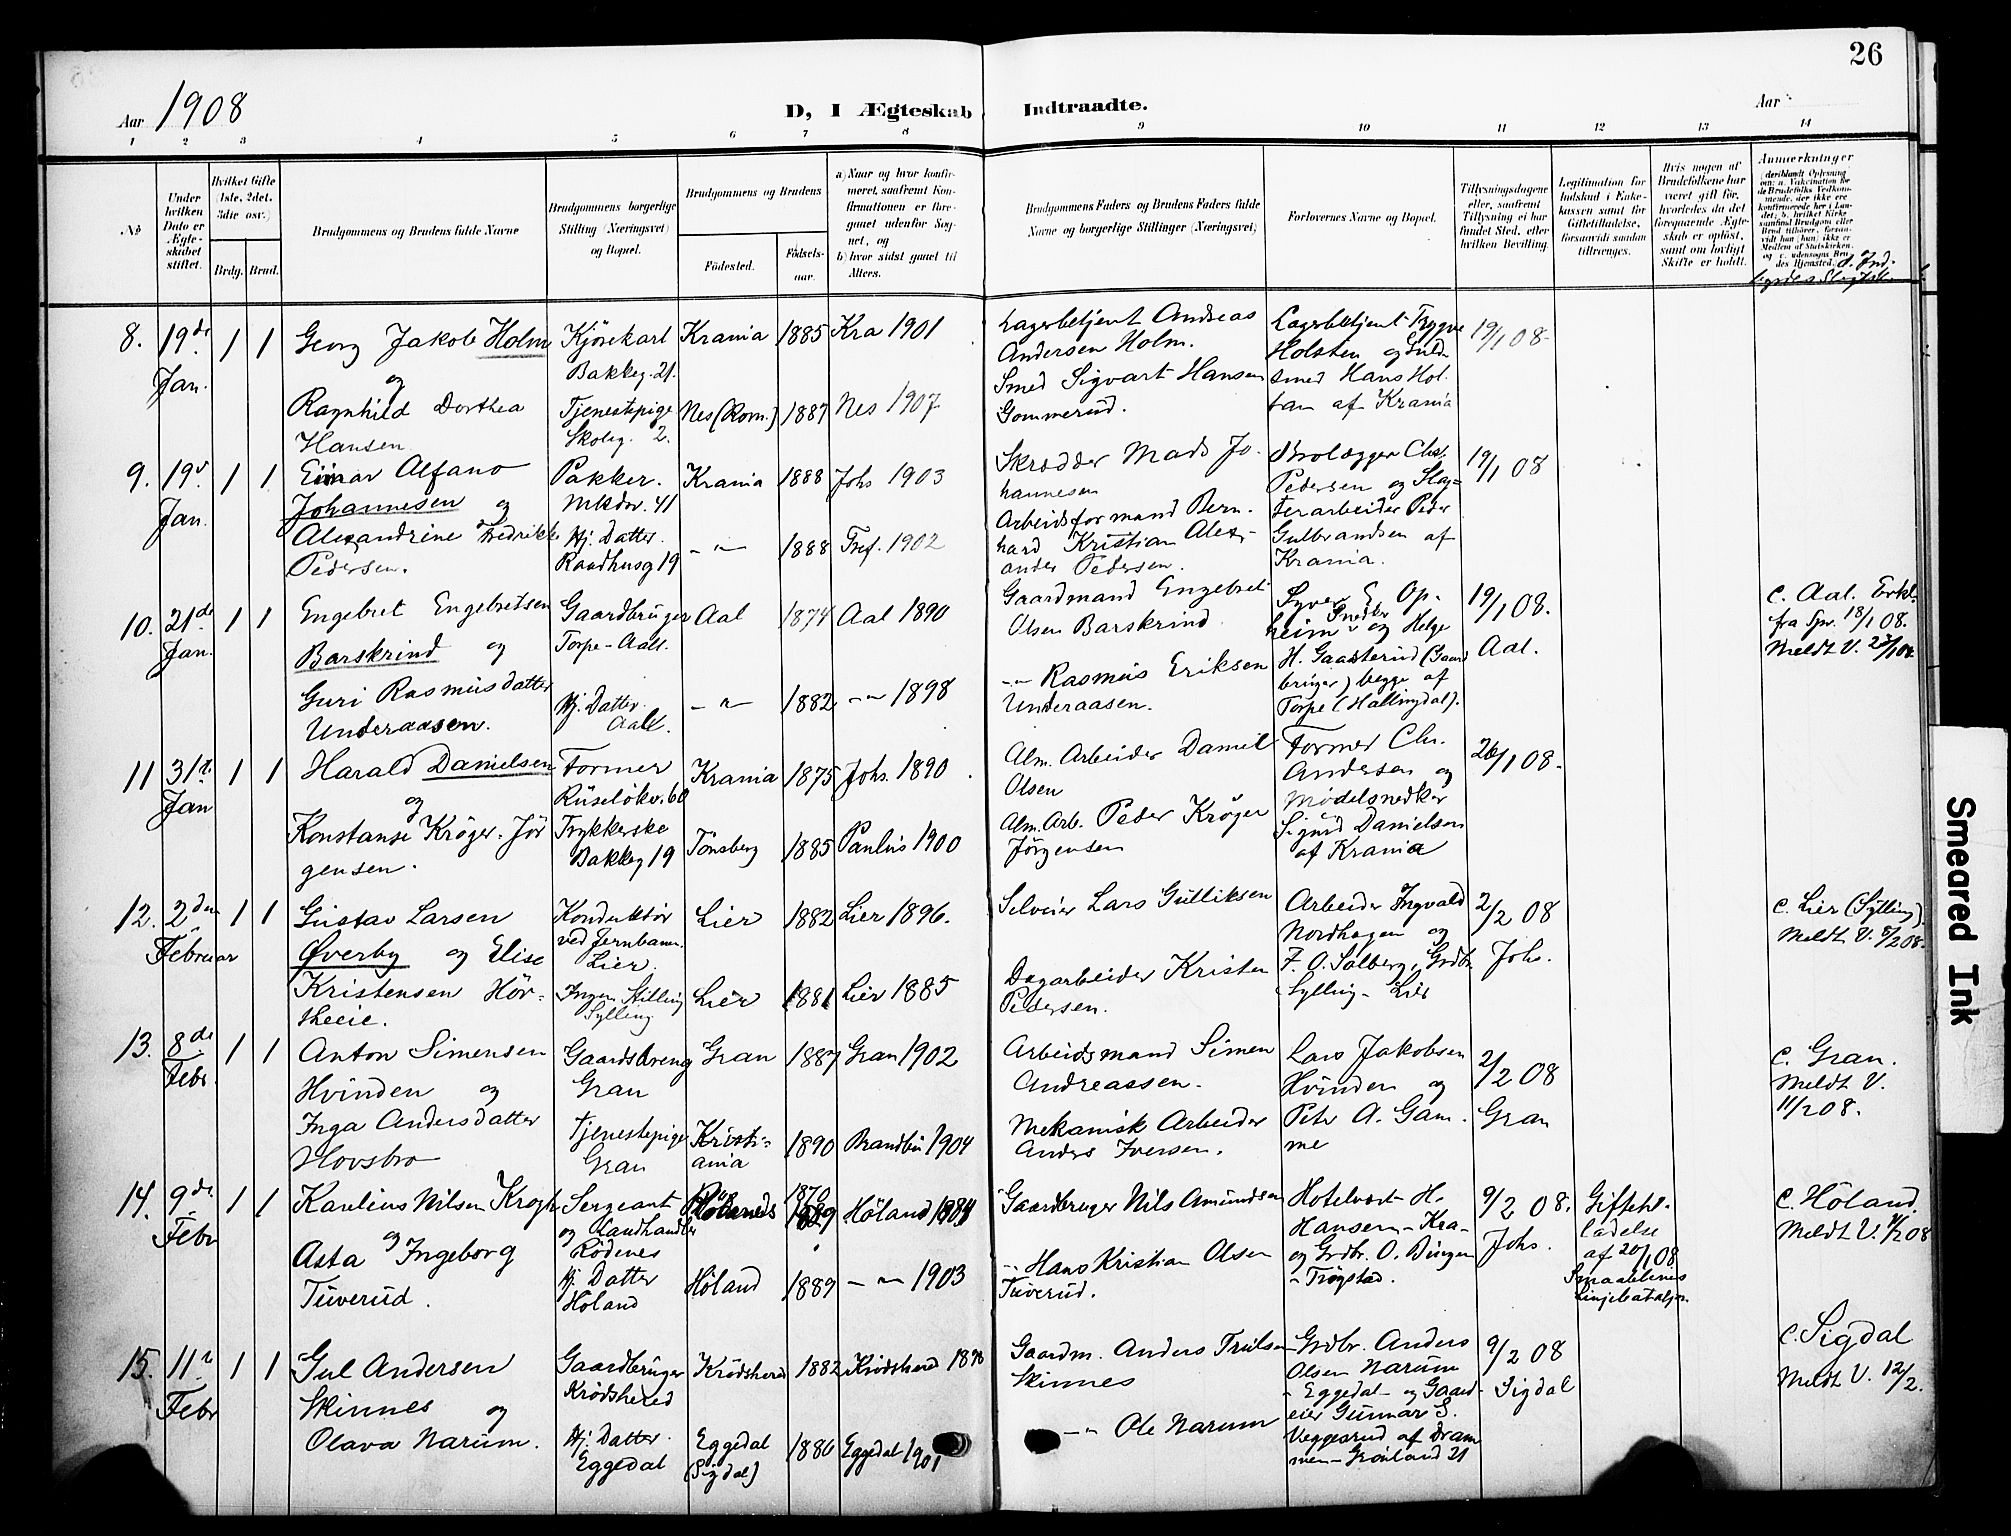 26
Aar 1908
D, I Ægteskab Indtraadte.
Aar
1 2 3 4 5 6 7 8 9 10 11 12 13 14
No
Under hvilken Dato er Ægteskabet stiftet.
Hvilket Gifte (1ste, 2det, 3die osv.)
Brdg. Brud.
Brudgommens og Brudens fulde Navne
Brudgommens borgerlige Stilling (Næringsvei) og Bopæl.
Brudgommens og Brudens
Fødested. Fødselsaar.
a) Naar og hvor konfirmeret, saafremt Konfirmationen er foregaaet udenfor Sognet, og
b) hvor sidst gaaet til Alters.
Brudgommens Faders og Brudens Faders fulde Navne og borgerlige Stillinger (Næringsvei)
Forlovernes Navne og Bopæl.
Tillysningsdagene eller, saafremt Tillysning ei har fundet Sted, efter hvilken Bevilling.
Legitimation for Indskud i Enkekassen samt for Giftetilladelse, forsaavidt saadan tiltrænges.
Hvis nogen af Brudefolkene har været gift før, hvorledes da det foregaaende Ægteskab er opløst, samt om lovligt Skifte er holdt.
Anmærkninger
8. 19de Jan. 1 1
Georg Jakob Holm
og
Ragnhild Dorthea
Hansen
Kjörekarl
Bakkeg. 21.
Tjenestepige
Skoleg. 2.
Krania 1885 Kra 1901
Nes (Rom.) 1887 Nes 1907
Lagerbetjent Andreas
Andersen Holm.
Smed Sigvart Hansen
Gommerud.
Lagerbetjent Trygve
Holsten og Guld-
smed Hans Hol-
tan af Krania
19/1 08.
9. 19. Jan. 1 1
Einar Alfano
Johannesen og
Alexandrine Fredrikke
Pedersen.
Pakker.
Mkdor. 41
Hj. Datter.
Raadhusg 19
Krania 1888 Johs 1903
- " - 1888 Tref. 1902
Skrædder Mads Jo-
hannesen
Arbeidsformand Bern-
hard Kristian Alex-
ander Pedersen.
Brolægger Chs.
Pedersen og Slag-
terarbeider Peder
Gulbrandsen af
Krania.
19/1 08
10. 21de Jan. 1 1
Engebret Engebretsen
Barskrind og
Guri Rasmusdatter
Underaasen.
Gaardbruger
Torpe - Aal.
Hj. Datter.
Aal.
Aal 1874 Aal 1890
- " - 1882 - " - 1898
Gaardmand Engebret
Olsen Barskrind.
- " - Rasmus Eriksen
Underaasen.
Syver E. Op-
heim Snedker og Helge
H. Gaasterud (Gaard
bruger) begge af
Torpe (Hallingdal).
19/1 08.
Aal.
c. Aal. Erkl.
fra Spr. 18/1 08.
Meldt V.
11 31te Jan 1 1
Harald Danielsen
og
Konstanse Kröger Jör
gensen.
Former
Rüselökv. 60
Trykkerske
Bakkeg 19
Krania 1875 Johs. 1890.
Tönsberg 1885 Paulus 1900
Alm. Arbeider Daniel
Olsen
Alm. Arb. Peder Kröger
Jörgensen
Former Chr.
Andersen og
Modelsnedker
Sigurd Danielsen
af Krania
26/1 08.
12. 2den Februar 1 1
Gustav Larsen
Øverby og Elise
Kristensen Hör-
theeie.
Konduktör
ved Jernbanen.
Lier.
Ingen Stilling
Sylling
Lier 1882 Lier 1896.
Lier 1881 Lier 1885
Selveier Lars Gulliksen
Dagarbeider Kristen
Pedersen.
Arbeider Ingvald
Nordhagen og
F. O. Solberg, Grdbr.
Sylling - Lier
2/2 08
Johs.
c. Lier (Sylling)
Meldt V. 8/2 08.
13. 8de Febr. 1 1
Anton Simensen
Hvinden og
Inga Andersdatter
Hovsbro
Gaardsdreng
Gran
Tjenestepige
Gran
Gran 1887 Gran 1902
Kristi-
ania 1890 Brandbu 1904
Arbeidsmand Simen
Andreassen.
Mekanisk Arbeider
Anders Iversen.
Lars Jakobsen
Hvinden og
Peter A. Gam-
me
2/2 08
Gran
c. Gran.
Meldt V.
11/2 08.
14. 9de Febr 1 1
Karelius Nilsen Krogh
og
Asta Ingeborg
Tuverud.
Sergeant
og Landhandler
Rödenes
Hj. Datter
Höland
1879 Höland 1884
Höland 1889 - " - 1903
Gaardbruger Nils Amundsen
- " - Hans Kristian Olsen
Tuverud.
Hotelvært H.
Hansen - Kra -
og Grdbr. O. Bingen
- Trögstad.
9/2 08.
Johs.
Giftetil-
ladelse
af 20/1 08
Smaalenenes
Linjebataljon.
c. Höland.
Meldt V. 11/2 08
15. 11. Febr 1 1
Gul Andersen
Skinnes og
Olava Narum.
Gaardbruger
Krödshered
Hj. Datter.
Eggedal
Krödshered 1882 Krödshered
Eggedal
(Sigdal) 1886 Eggedal 1901
Gaardm. Anders Trulsen
Skinnes
- " - Ole Narum
Grdbr. Anders
Olsen Narum
- Eggedal - og Gaard-
eier Gunnar S.
Veggesrud af Dram
men - Grönland 21
9/2 08
Sigdal
c. Sigdal
Meldt V. 12/2.
Smeared Ink